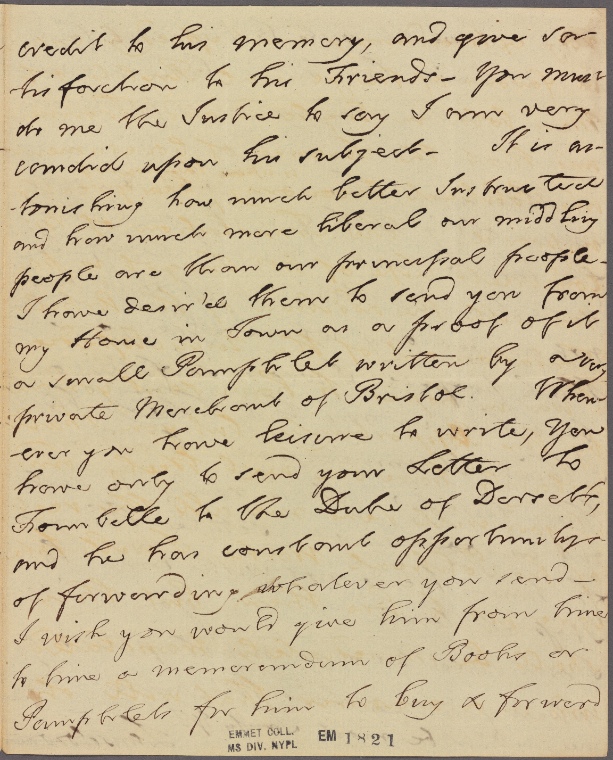 credit to his memory, and give sa-
-tisfaction to his Friends - You must
do me the Justice to say I am very
candid upon his subject - It is as-
-tonishing how much better Instructed
and how much more liberal our middling
people are than our principal people -
I have desir'd them to send you from
my House in Town as a proof of it
a small Pamphlet written by a very
private Merchant of Bristol. When-
-ever you have leisure to write, You
have only to send your Letter to
to the Duke of Dorset,
and he has constant opportunitys
of forwarding whatever you send -
I wish you would give him from time
to time a memorandum of Books or
Pamphlets for him to buy & forward
EMMET COLL.
MS DIV. NYPL
EM 1821